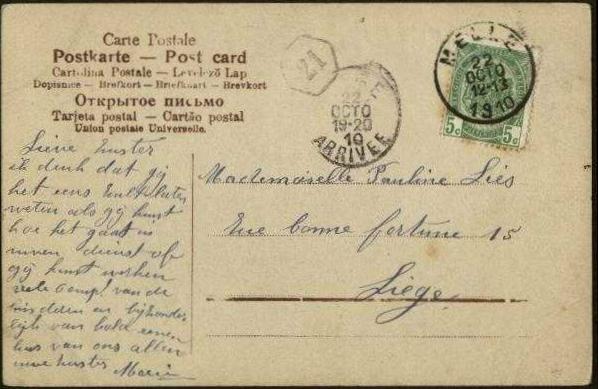 Carte Postale
Postkarte — Post card
Cartolina Postale — Levelező Lap
Dopisnice — Brefkort — Briefkaart — Brevkort
Открытое письмо
Tarjeta postal — Cartão postal
Union postale Universelle.
21
22
OCTO
19-20
10
ARRIVÉE
MELLE
22
OCTO
12-13
1910
5c 5c
Lieve zuster
ik denk dat gij
het eens zult laten
weten als gij kunt
hoe het gaat in
uwen dienst of
gij kunt werken
van de
en bijzonder
lijk van
kus van ons allen
uwe zuster Marie
Mademoiselle Pauline Liés
Rue bonne fortune 15
Liège